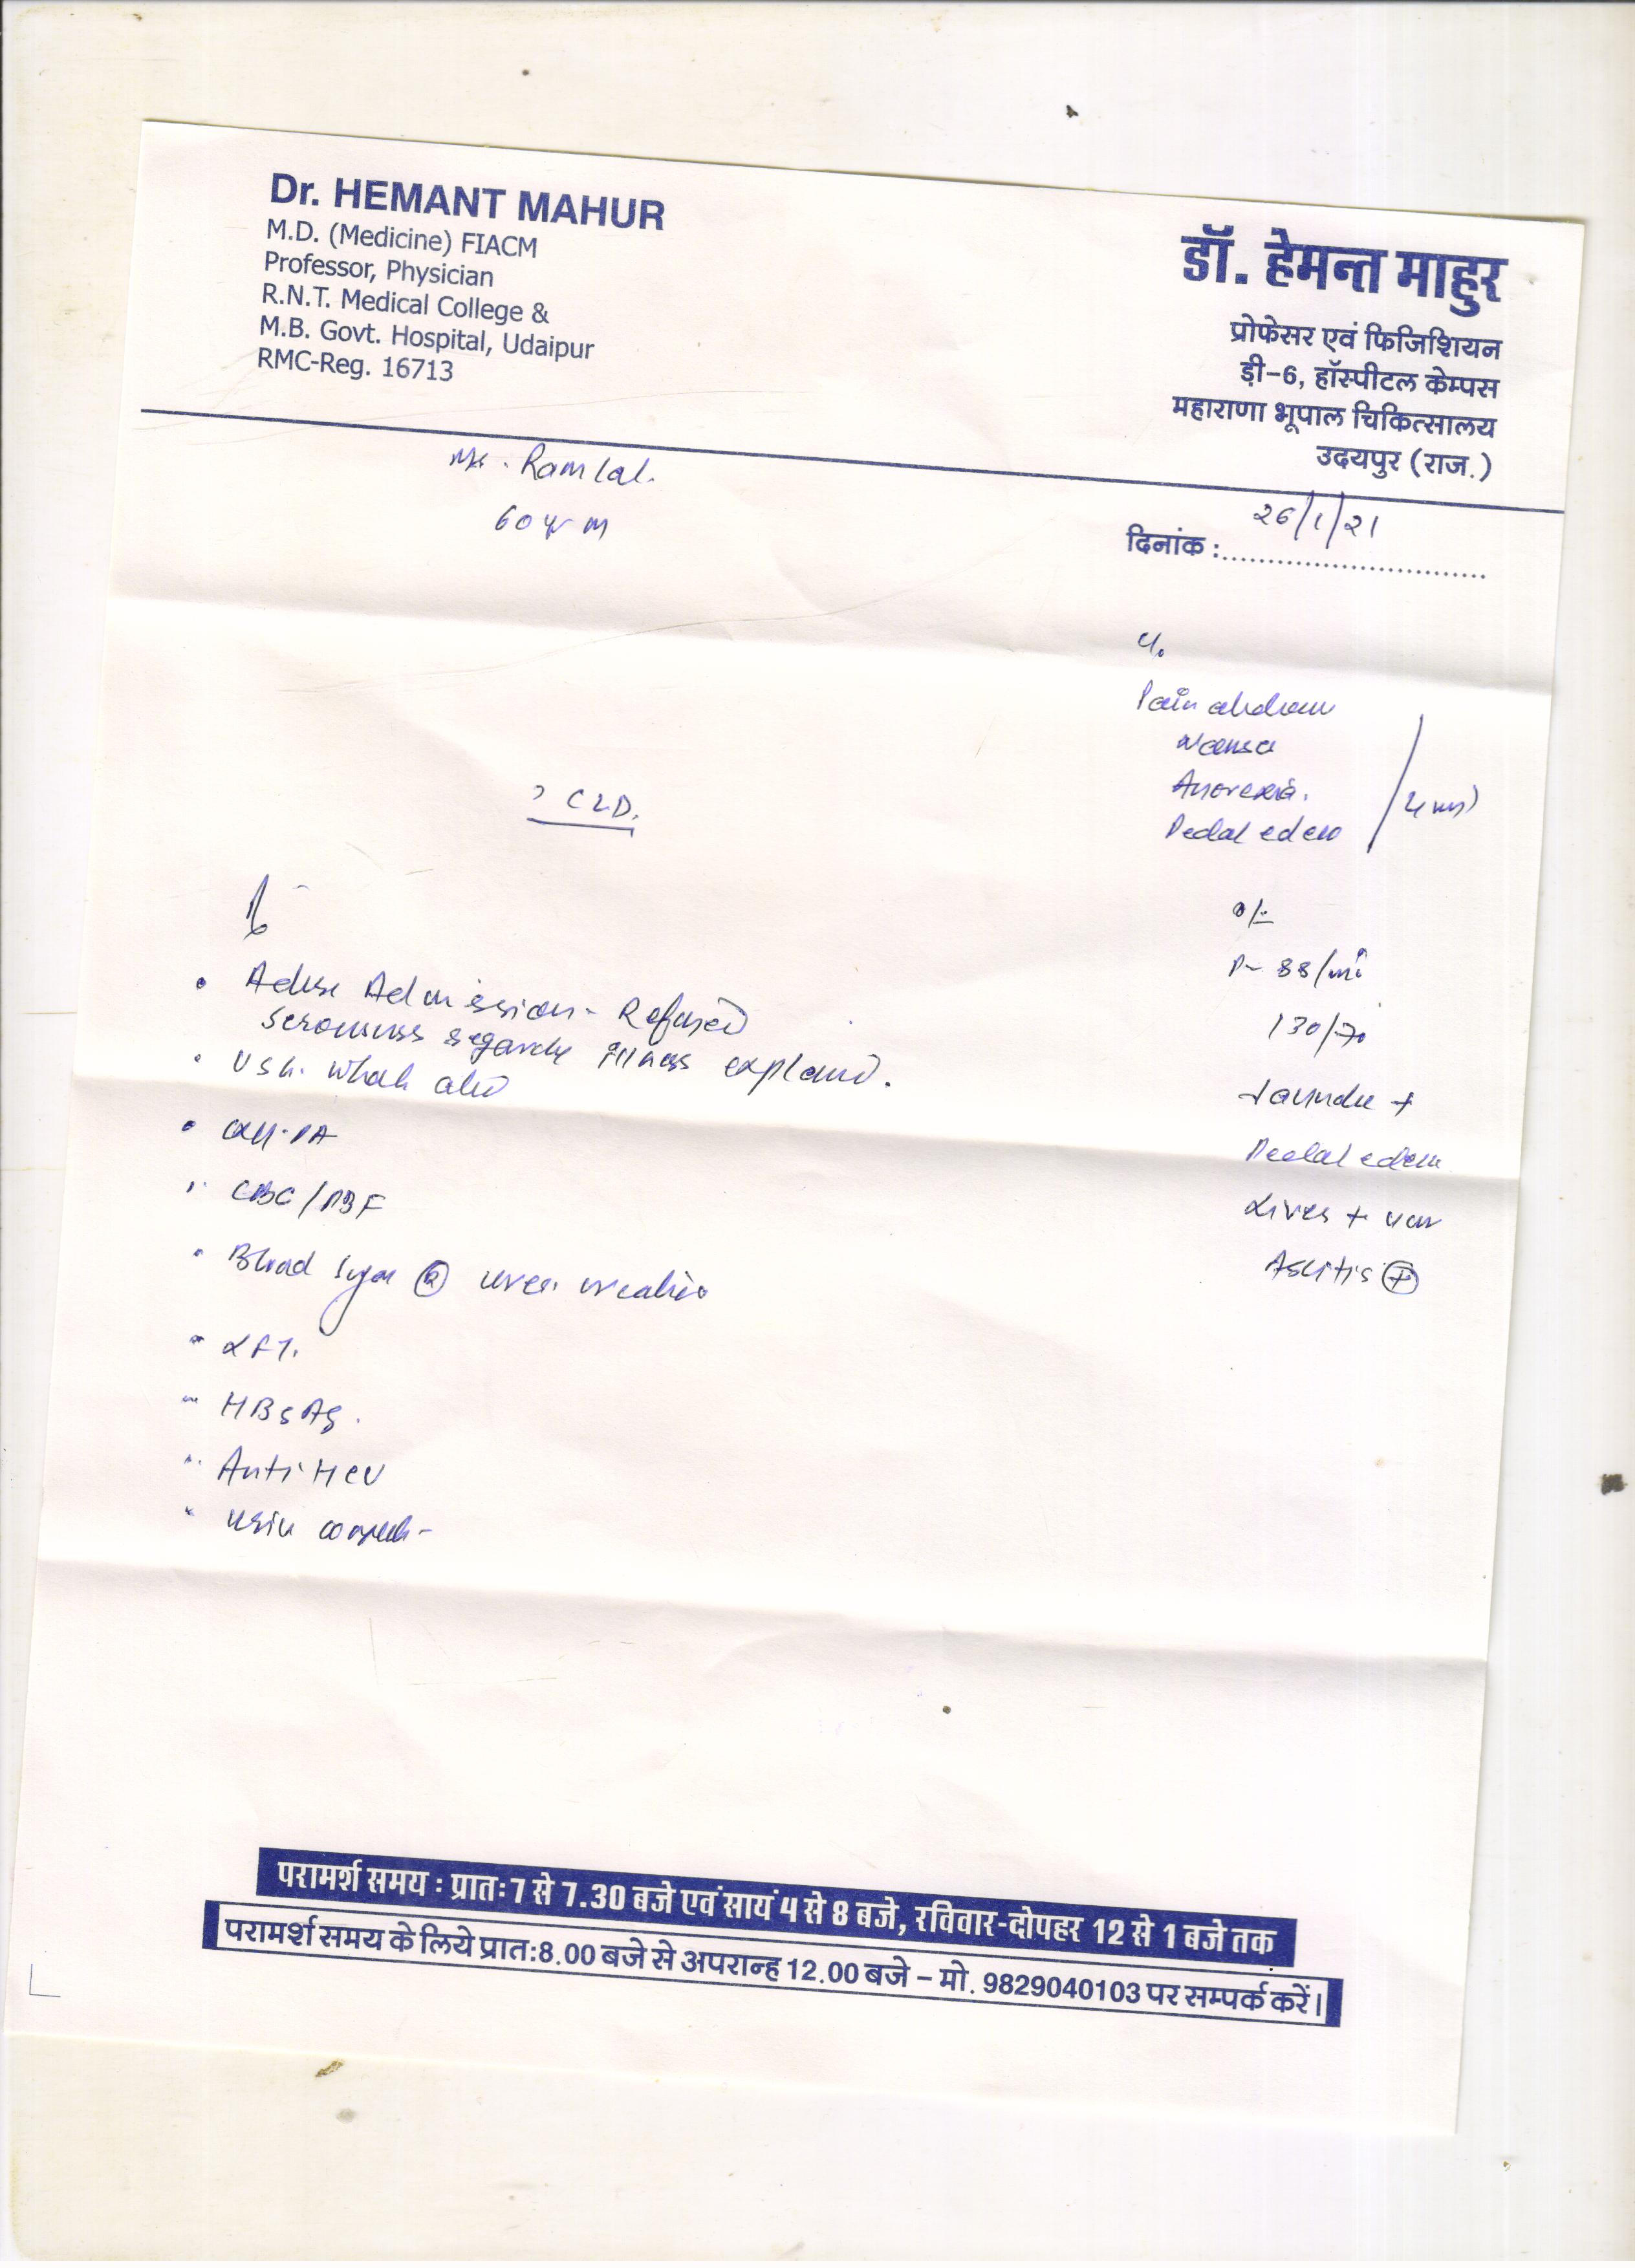 Dr. HEMANT MAHUR
M.D. (Medicine) FIACM
Professor, Physician
R.N.T. Medical College &
M.B. Govt. Hospital, Udaipur
RMC-Reg. 16713
डॉ. हेमन्त माहुर
प्रोफेसर एवं फिजिशियन
ड़ी-6, हॉस्पीटल केम्पस
महाराणा भूपाल चिकित्सालय
उदयपुर (राज.)
Mr. Ramlal.
60 yr M
दिनांक : 26/1/21
Pain abdom
Nausea
Anorexia.
Pedal edem
? CLD.
O/E
P- 88/mi
130/70
Jaundice +
Pedal edem
Liver +
Ascitis +
Advise Admission - Refused
Seriousness regarding illness explained.
USG. whole abd
CBC / PBF
Blood Sugar (R) urea creatin
LFT.
HBsAg.
Anti HCV
Urine complete
परामर्श समय : प्रातः 7 से 7.30 बजे एवं सायं 4 से 8 बजे, रविवार-दोपहर 12 से 1 बजे तक
परामर्श समय के लिये प्रात:8.00 बजे से अपरान्ह 12.00 बजे – मो. 9829040103 पर सम्पर्क करें।